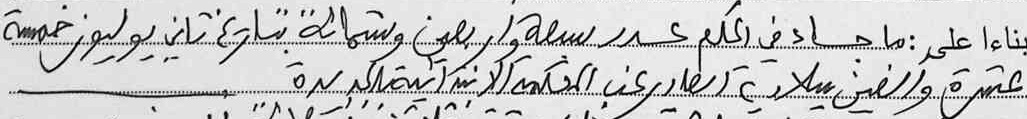 بناءا على : ما جاء في الحكم عدد سبعة واربعين وستمائة بتاريخ ثاني يوليوز خمسة
عشرة والفين ميلادية الصادر عن المحكمة الابتدائية بالجديدة